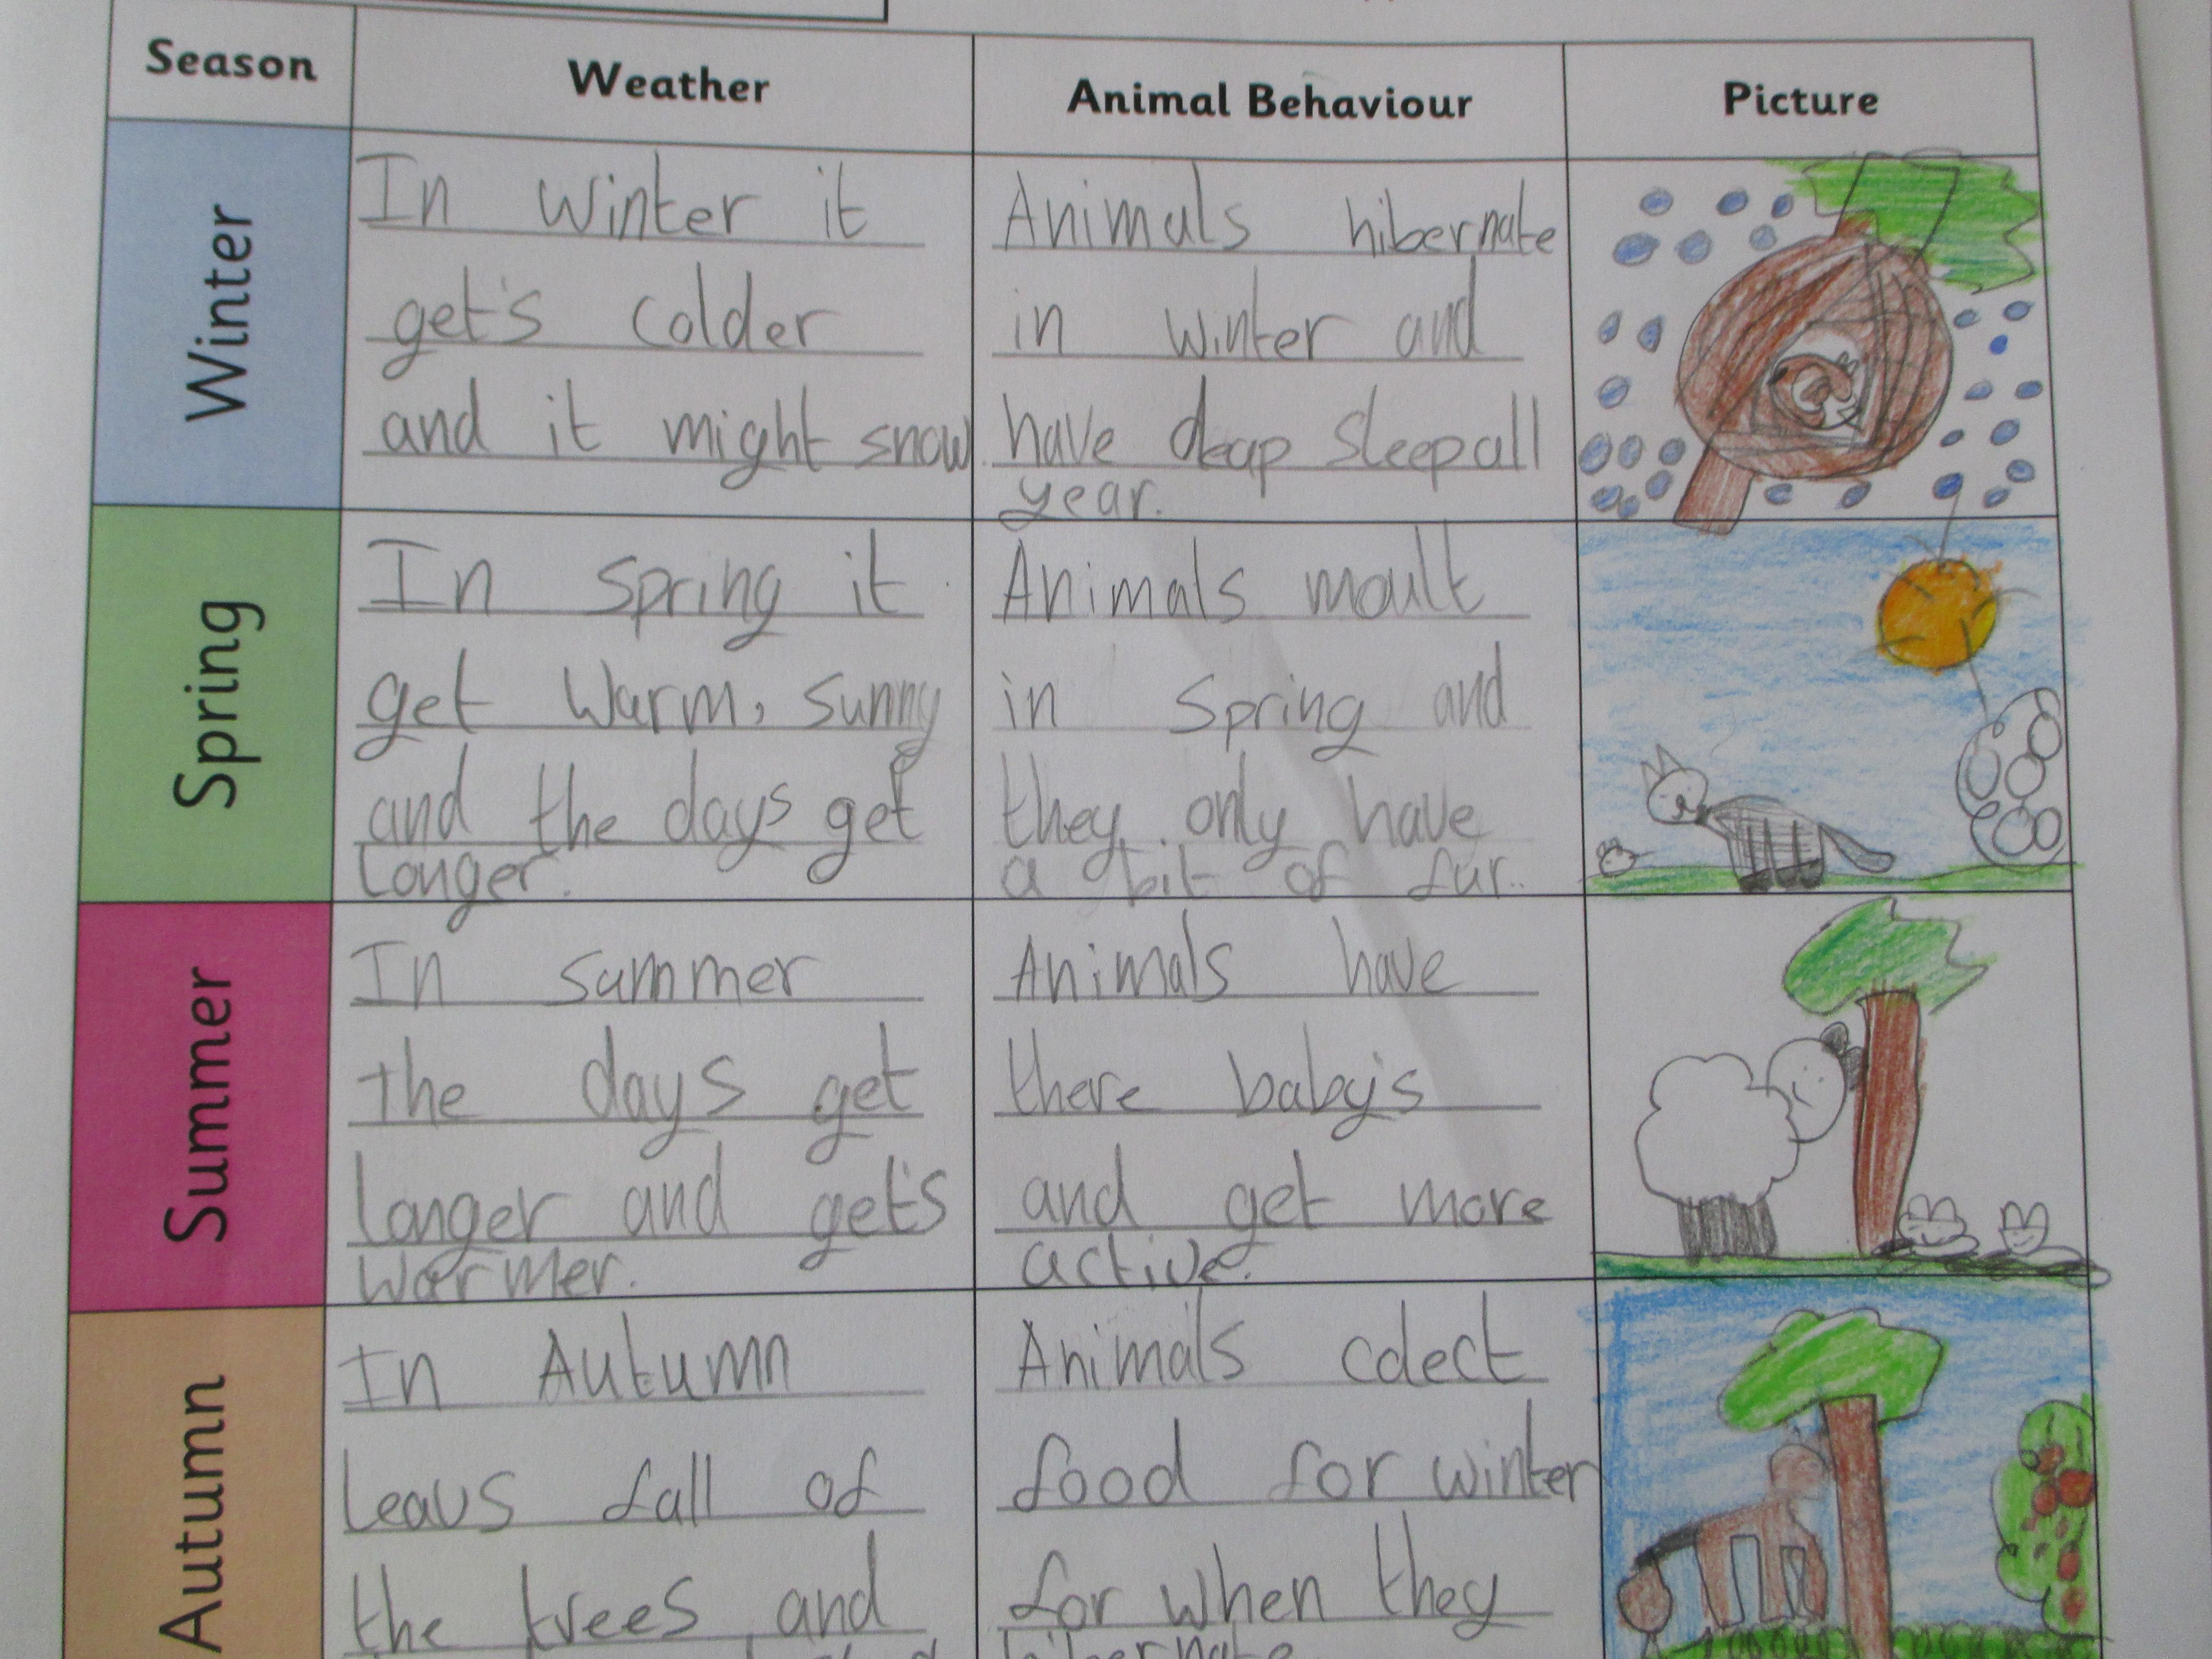 Season Weather Animal Behaviour Picture
Winter
In winter it
get's colder
and it might snow
Animals hibernate
in winter and
have deap sleep all
year.
Spring
In spring it
get warm, sunny
and the days get
longer.
Animals moult
in spring and
they only have
a bit of fur..
Summer
In summer
the days get
longer and get's
warmer.
Animals have
there baby's
and get more
active.
Autumn
In Autumn
leavs fall of
the trees and
Animals colect
food for winter
for when they
hibernate